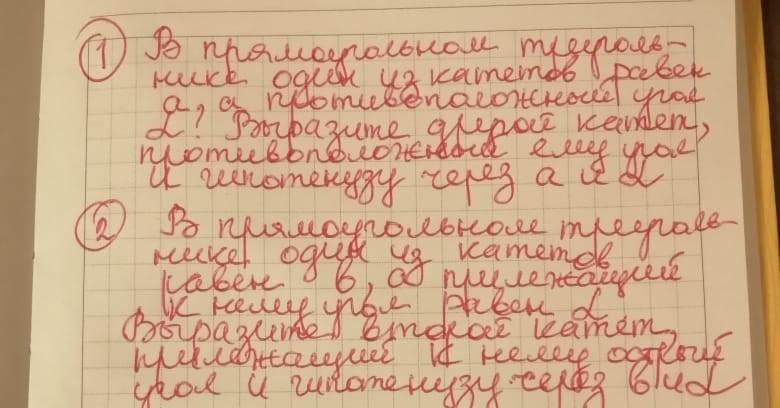 ① В прямоугольном треуголь-
нике один из катетов равен
a, а противоположный угол
α? Выразите другой катет,
противоположный ему угол
и гипотенузу через a и α
② В прямоугольном треуголь-
нике один из катетов
равен b, а прилежащий
к нему угол равен α
Выразите второй катет,
прилежащий к нему острый
угол и гипотенузу через b и α